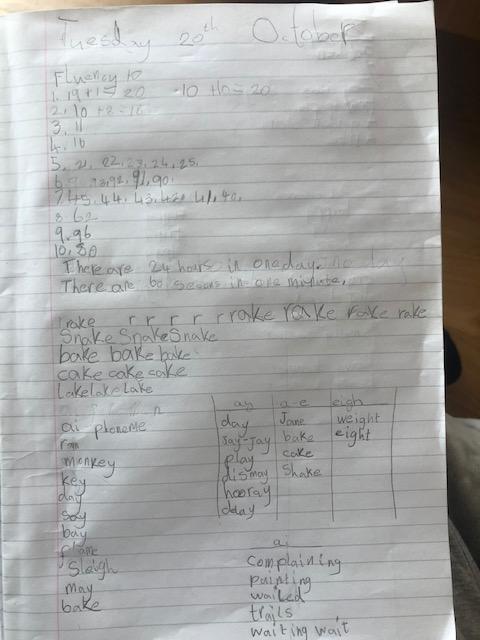 Tuesday 20th October
Fluency 10
1. 19+1= 20 10 +10= 20
2. 10 +8=18
3. 11
4. 16
5. 21, 22, 23, 24, 25.
6. 93, 92, 91, 90.
7. 45, 44, 43, 42, 41, 40.
8. 62
9. 96
10. 50
There are 24 hours in one day.
There are 60 secons in one
rake r r r r rrake rake rake rake
Snake Snake Snake
bake bake bake
cake cake cake
Lake lake Lake
ai phoneme
ran
monkey
key
day
say
bay
flame
Sleigh
may
bake
ay a-e eigh
day Jane weight
Jay-Jay bake eight
play cake
dismay Shake
hooray
delay
ai
complaining
painting
waited
trails
waiting wait